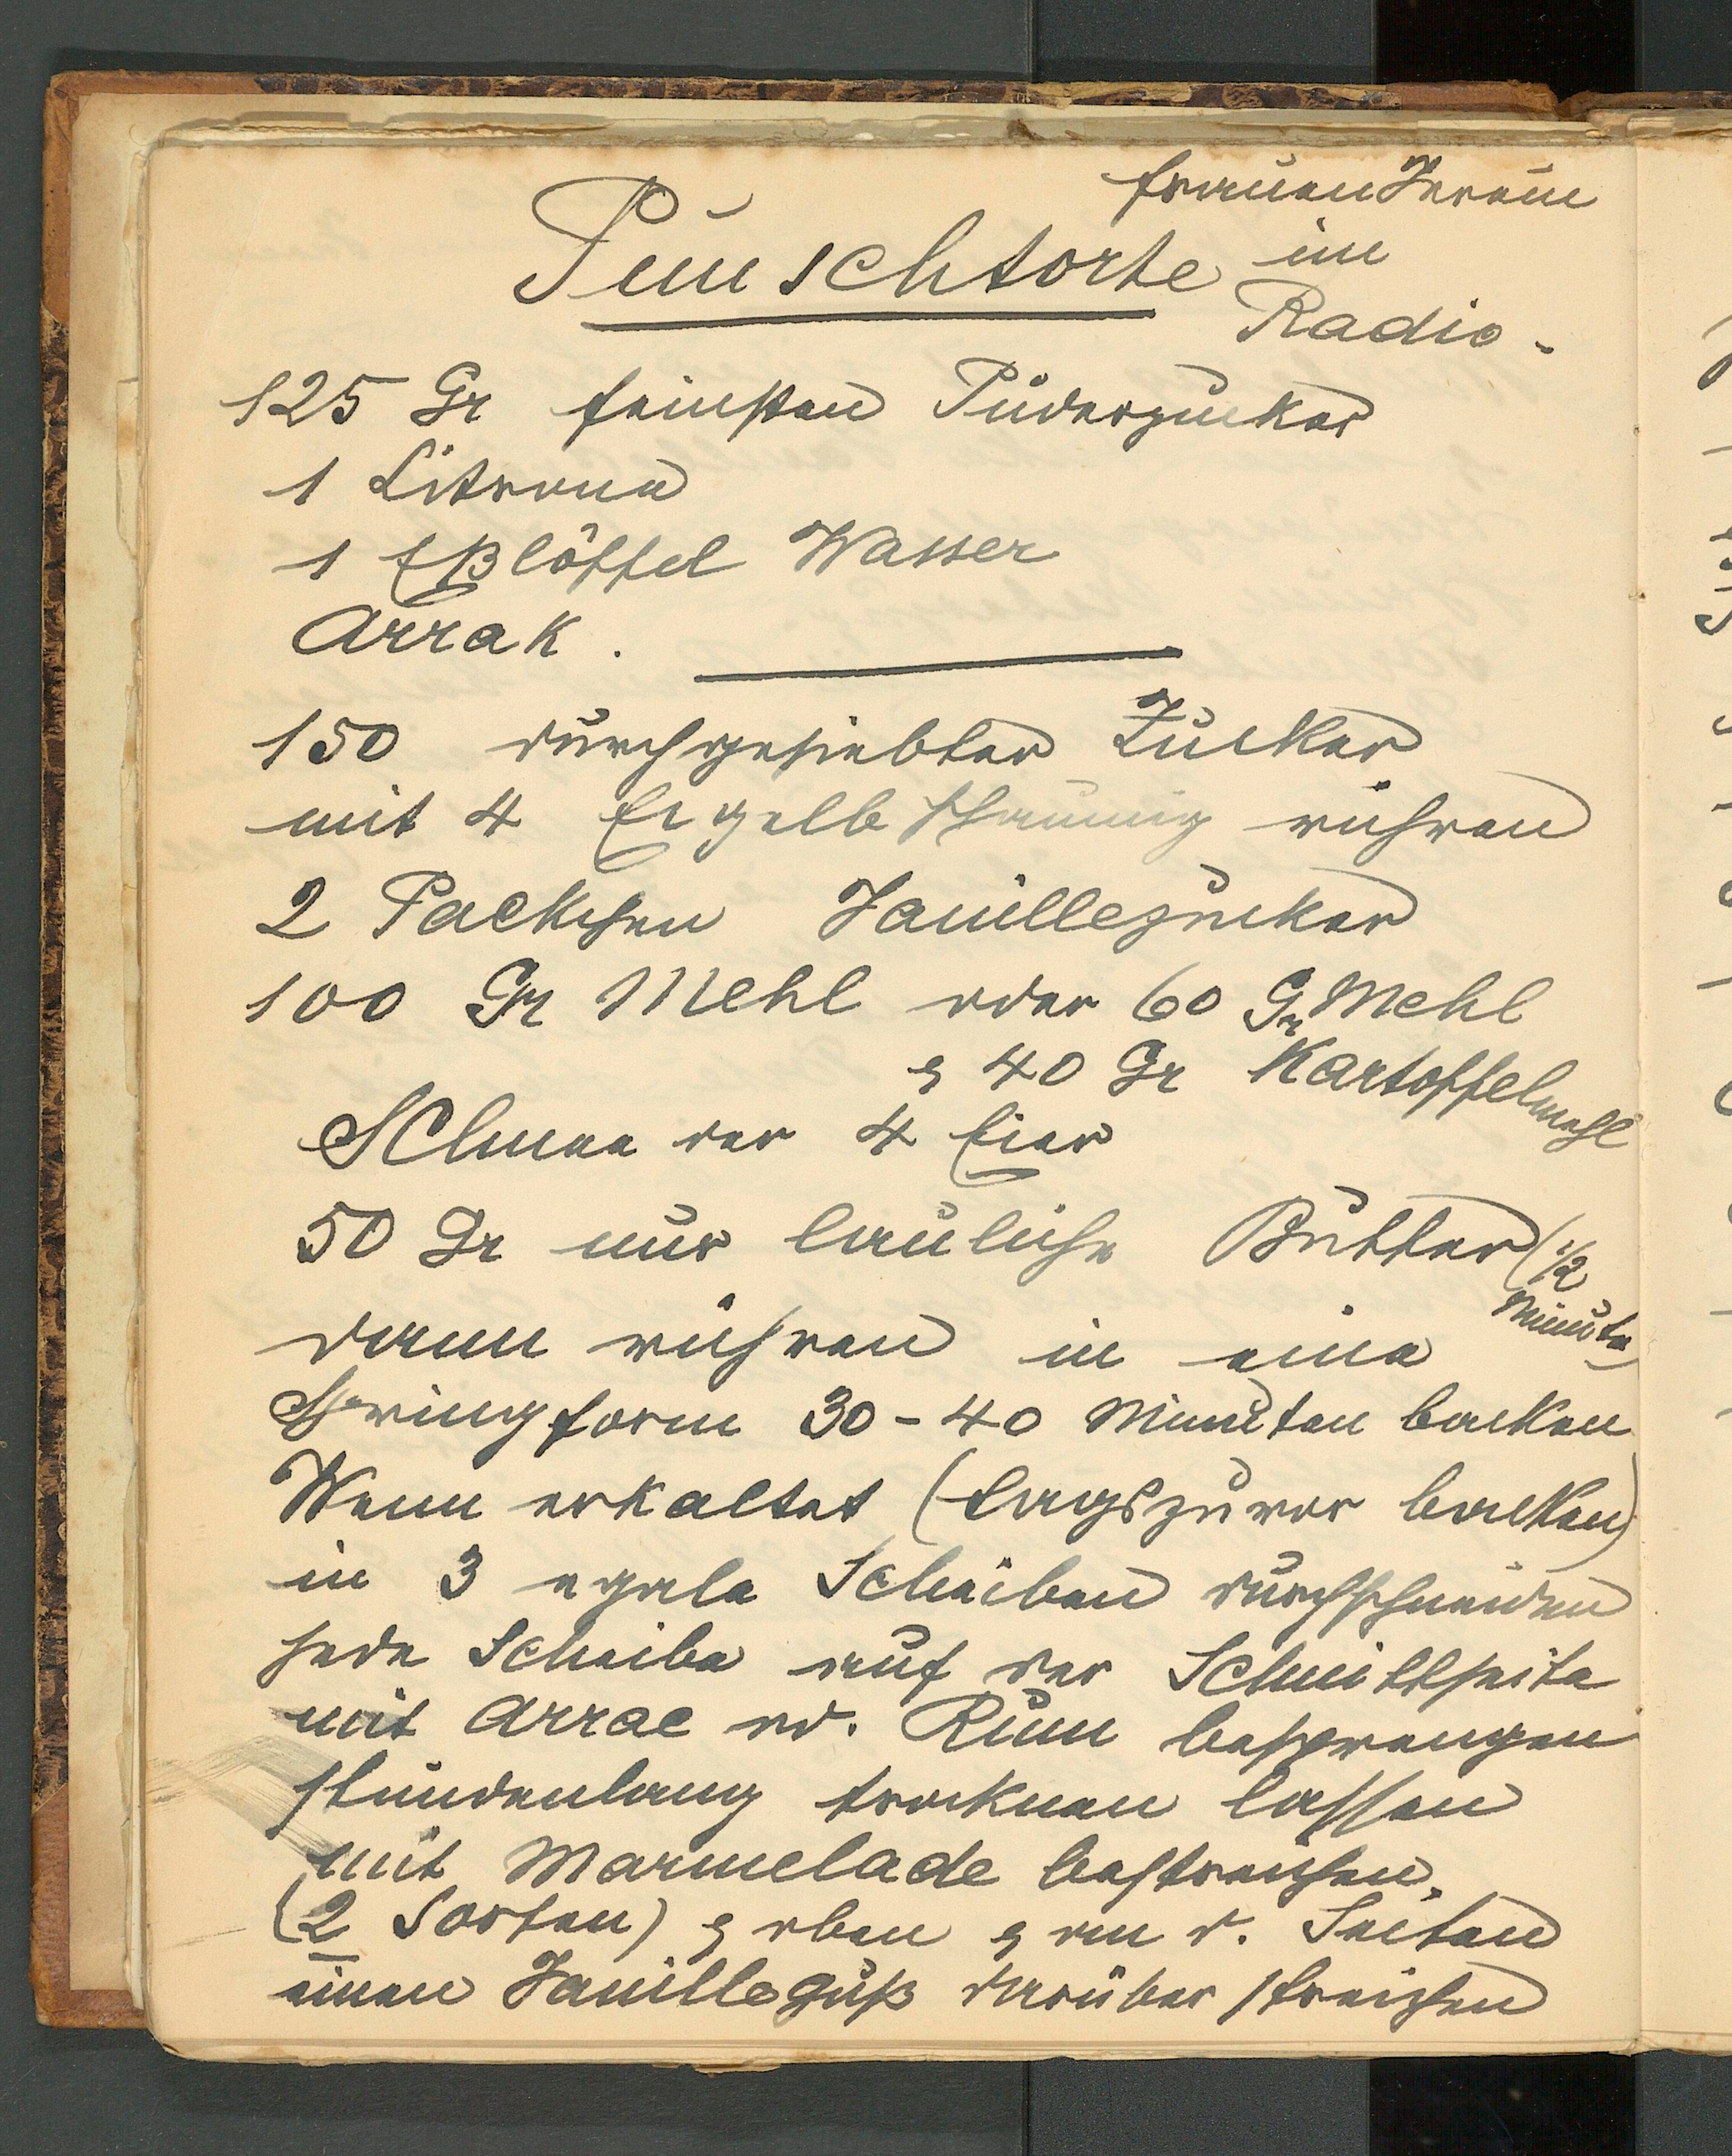 Frauen Verein
Punschtorte im
Radio.
125 Gr feinsten Puderzucker
1 Citrone
1 Eßlöffel Wasser
Arrak.
150 durchgesiebter Zucker
mit 4 Eigelb schaumig rühren
2 Packchen Vanillezucker
100 Gr Mehl oder 60 Gr Mehl
& 40 Gr Kartoffelmehl
Schnee der 4 Eier
50 Gr nur lauliche Butter (1/2
Minute
dann rühren in eine
Springform 30-40 Minuten backen
Wenn erkaltet (tagszuvor backen)
in 3 egale Scheiben durchschneiden
jede Scheibe auf der Schnittseite
mit Arrac od. Rum besprengen
stundenlang trocknen lassen
mit Marmelade bestreichen.
(2 Sorten) & oben & an d. Seiten
einen Vanilleguß darüber streichen